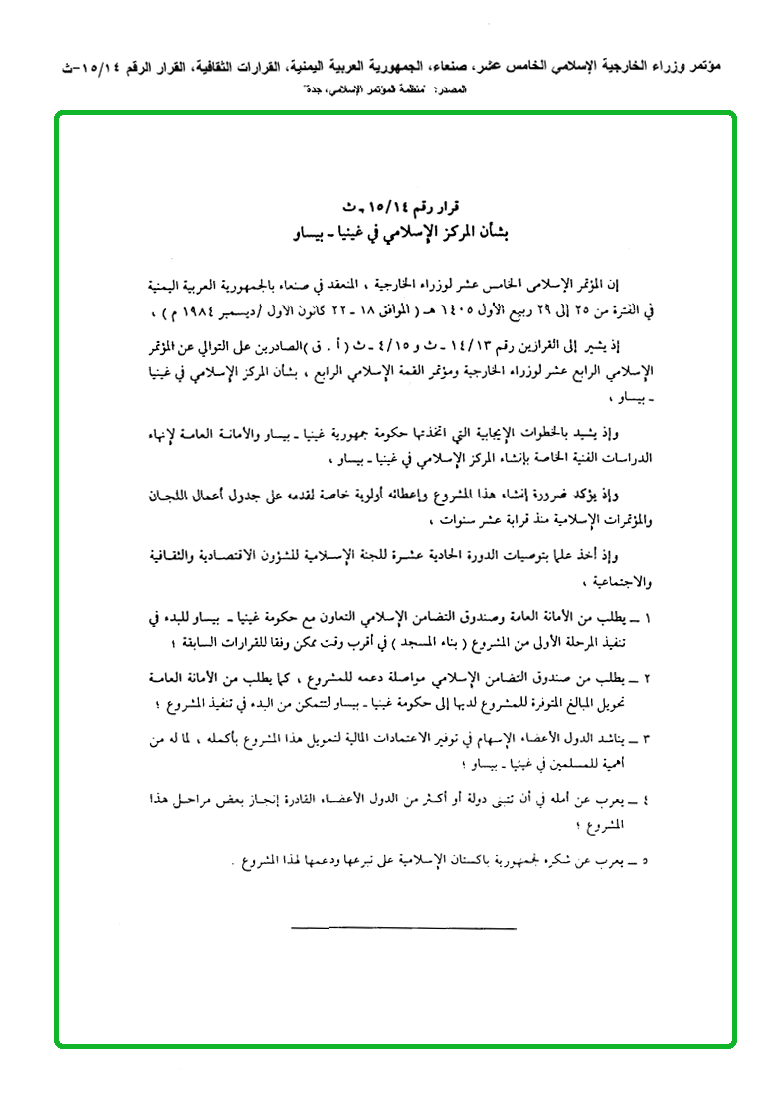 مؤتمر وزراء الخارجية الإسلامي الخامس عشر، صنعاء، الجمهورية العربية اليمنية، القرارات الثقافية، القرار الرقم ١٥/١٤-ث
المصدر: "منظمة المؤتمر الإسلامي، جدة"
قرار رقم ١٥/١٤ - ث
بشأن المركز الإسلامي في غينيا ـ بيساو
إن المؤتمر الإسلامى الخامس عشر لوزراء الخارجية ، المنعقد في صنعاء بالجمهورية العربية اليمنية
في الفترة من ٢٥ إلى ٢٩ ربيع الأول ١٤٠٥ هـ ( الموافق ١٨ ـ ٢٢ كانون الاول /ديسمبر ١٩٨٤ م ) ،
إذ يشير إلى القرازين رقم ١٤/١٣ ـ ث و ٤/١٥ ـ ث ( أ . ق )الصادرين على التوالي عن المؤتمر
الإسلامي الرابع عشر لوزراء الخارجية ومؤتمر القمة الإسلامي الرابع ، بشأن المركز الإسلامي في غينيا
ـ بيساو ،
وإذ يشيد بالخطوات الإيجابية التي اتخذتها حكومة جمهورية غينيا ـ بيساو والأمانة العامة لإنهاء
الدراسات الفنية الخاصة بإنشاء المركز الإسلامي في غينيا ـ بيساو ،
وإذ يؤكد ضرورة إنشاء هذا المشروع وإعطائه أولوية خاصة لقدمه على جدول أعمال اللجان
والمؤتمرات الإسلامية منذ قرابة عشر سنوات ،
وإذ أخذ علما بتوصيات الدورة الحادية عشرة للجنة الإسلامية للشؤون الاقتصادية والثقافية
والاجتماعية ،
١ ـ يطلب من الأمانة العامة وصندوق التضامن الإسلامي التعاون مع حكومة غينيا ـ بيساو للبدء في
تنفيذ المرحلة الأولى من المشروع ( بناء المسجد ) في أقرب وقت ممكن وفقا للقرارات السابقة ؛
٢ ـ يطلب من صندوق التضامن الإسلامي مواصلة دعمه للمشروع ، كما يطلب من الأمانة العامة
تحويل المبالغ المتوفرة للمشروع لديها إلى حكومة غينيا ـ بيساو لتتمكن من البدء في تنفيذ المشروع ؛
٣ ـ يناشد الدول الأعضاء الإسهام في توفير الاعتمادات المالية لتمويل هذا المشروع بأكمله ، لما له من
أهمية للمسلمين في غينيا ـ بيساو ؛
٤ ـ يعرب عن أمله في أن تتبنى دولة أو أكثر من الدول الأعضاء القادرة إنجاز بعض مراحل هذا
المشروع ؛
٥ ـ يعرب عن شكره لجمهورية باكستان الإسلامية على تبرعها ودعمها لهذا المشروع .